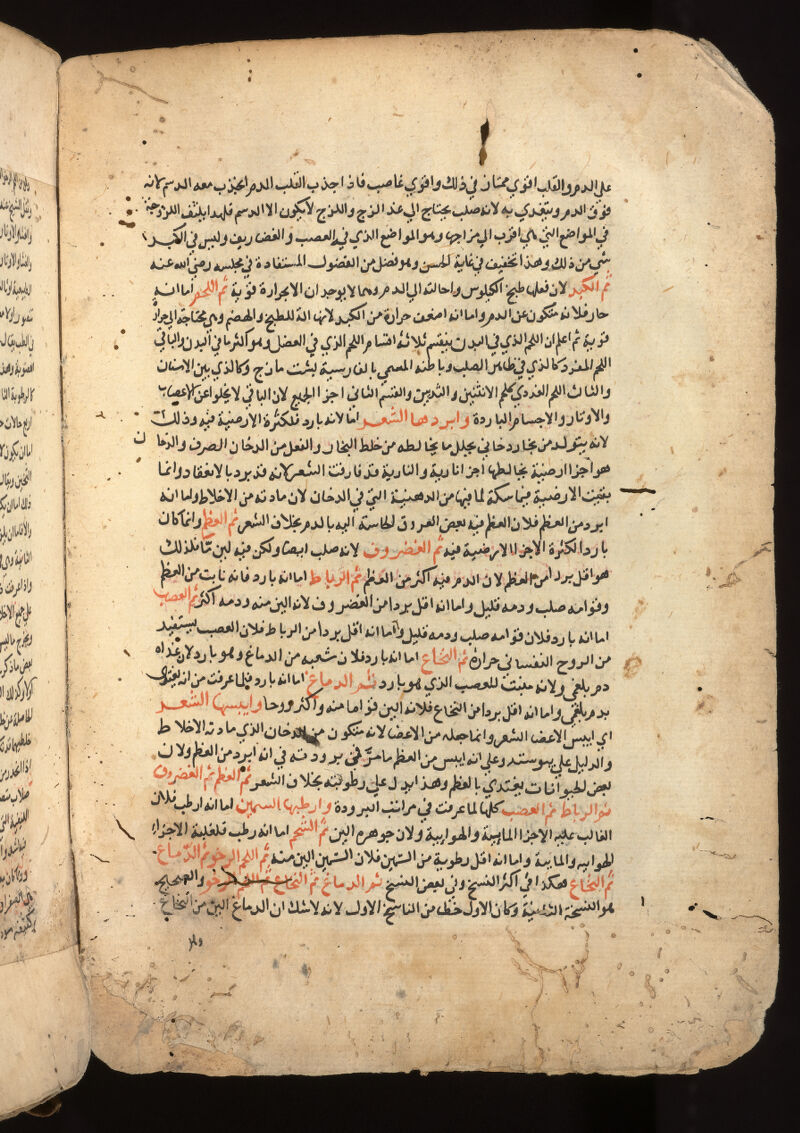 علي الدم والقلب اقوي ممتاز في ذلك واقوي غاصب فاذا جذب القلب الدم انجذب معه الدسم لانه
فوق الدم ويتغدي به لانه صلب يحتاج الي غذا لزج واللزج لا يكون الا الدسم فلهذا يلتف اللزوجة
في المواضع التي هي اقرب الي مزاجها وهو المواضع الذي في العصب والغضاريف وليس في الكبد
شي من ذلك وهذا تحقيق في غاية الحسن وهو فضل من الفضول المستفادة في مجلسه رضي الله عنه
ثم الكبد لان فعلها طبخ الكيلوس واحالته الي الدم وهما لا يوجدان الا بحرارة قوية ثم اللحم اما انه
حار فلانه متكون عن الدم واما انه اضعف حرارة من الكبد لانها الة للطبخ والهضم وهي محتاجة الي حرارة
قوية ثم اعلم ان اللحم الذي في البدن ينقسم ثلاثة اقسام اللحم الذي في العضل وهو اكثر ما في البدن والثاني
اللحم المفرد كالذي في ظاهر الصلب وباطنه المسمي بالفارسية بشت مازج وكالذي بين الاسنان
والثالث اللحم الغددي كلحم الانثيين والثديين والقسم الثاني اجزا الجميع لان الباقي لا يخلوا عن الاعصاب
والاوتار والاجسام الباردة وابردها الشعر اما لانه بارد فلكثرة الارضية فيه وذلك
لانه يتولد من بخار دخاني يحلل ما يخالطه من خلط البخار والفعل من الدخان الصرف والدخان
هو اجزا ارضية يخالطها اجزا نارية والنارية قد فارقت الشعر لانه قد برد بالانعقاد وانما
بقيت الارضية متماسكة لما فيها من الدهنية التي في الدخان لان مادته من الاخلاط واما انه
ابرد من العظم فلان العظم فيه بعض العروق الحاسة اليه بالدم بخلاف الشعر ثم العظم وانما كان
باردا لكثرة الاجزا الارضية فيه ثم الغضروف لانه صلب ايضا ولكن فيه لين ما فلذلك
هو اقل بردا من العظم لان الدم فيه اكثر من العظم ثم الرباط اما انه بارد فانه نابت من العظم
وقوامه صلب ودمه قليل واما انه اقل بردا من الغضروف لانه الين منه ودمه اكثر ثم العصب
اما انه بارد فلان قوامه صلب ودمه قليل واما انه اقل بردا من الرباط فلان العصب يستفيد
من الروح النفساني حرارة ثم النخاع اما انه بارد فلان شعبه من الدماغ وهو بارد لان غذاه
دم بلغمي ولانه منبت للعصب الذي هو بارد ثم الدماغ اما انه بارد فلما عرفت من انه يغتدي
بدم بلغمي واما انه اقل بردا من النخاع فلانه الين قواما منه واكثر روحا وايبسها الشعر
اي ايبس الاعضا الشعر وانما جعله من الاعضا لانه متكون من الدخان الذي مادته الاخلاط
والدليل علي يبوسته وعلي انه ايبس من العظم ما مر في برودته في انه ابرد من العظم ولان
بعض الحيوانات يغتدي بالعظم وهذا يدل علي رطوبته بخلاف الشعر ثم العظم ثم الغضروف
ثم الرباط ثم العصب كلها لما عرفت في مراتب البرودة وارطبها السمين اما انه ارطب فلان
الغالب عليه الاجزا المائية والهوائية ولان جوهره الين ثم الشحم اما انه رطب فلغلبة الاجزاء
الهوائيه والمائية واما انه اقل رطوبة من السمين فلان السمين الين منه ثم اللحم الرخو ثم الدماغ
ثم النخاع هكذا في اكثر النسخ وفي بعض النسخ ثم الدماغ ثم النخاع ثم اللحم الرخو والصحيح
هو النسخة الثانية وكان الاول خطا من الناسخ الاول لانه لا شك ان الدماغ الين من النخاع